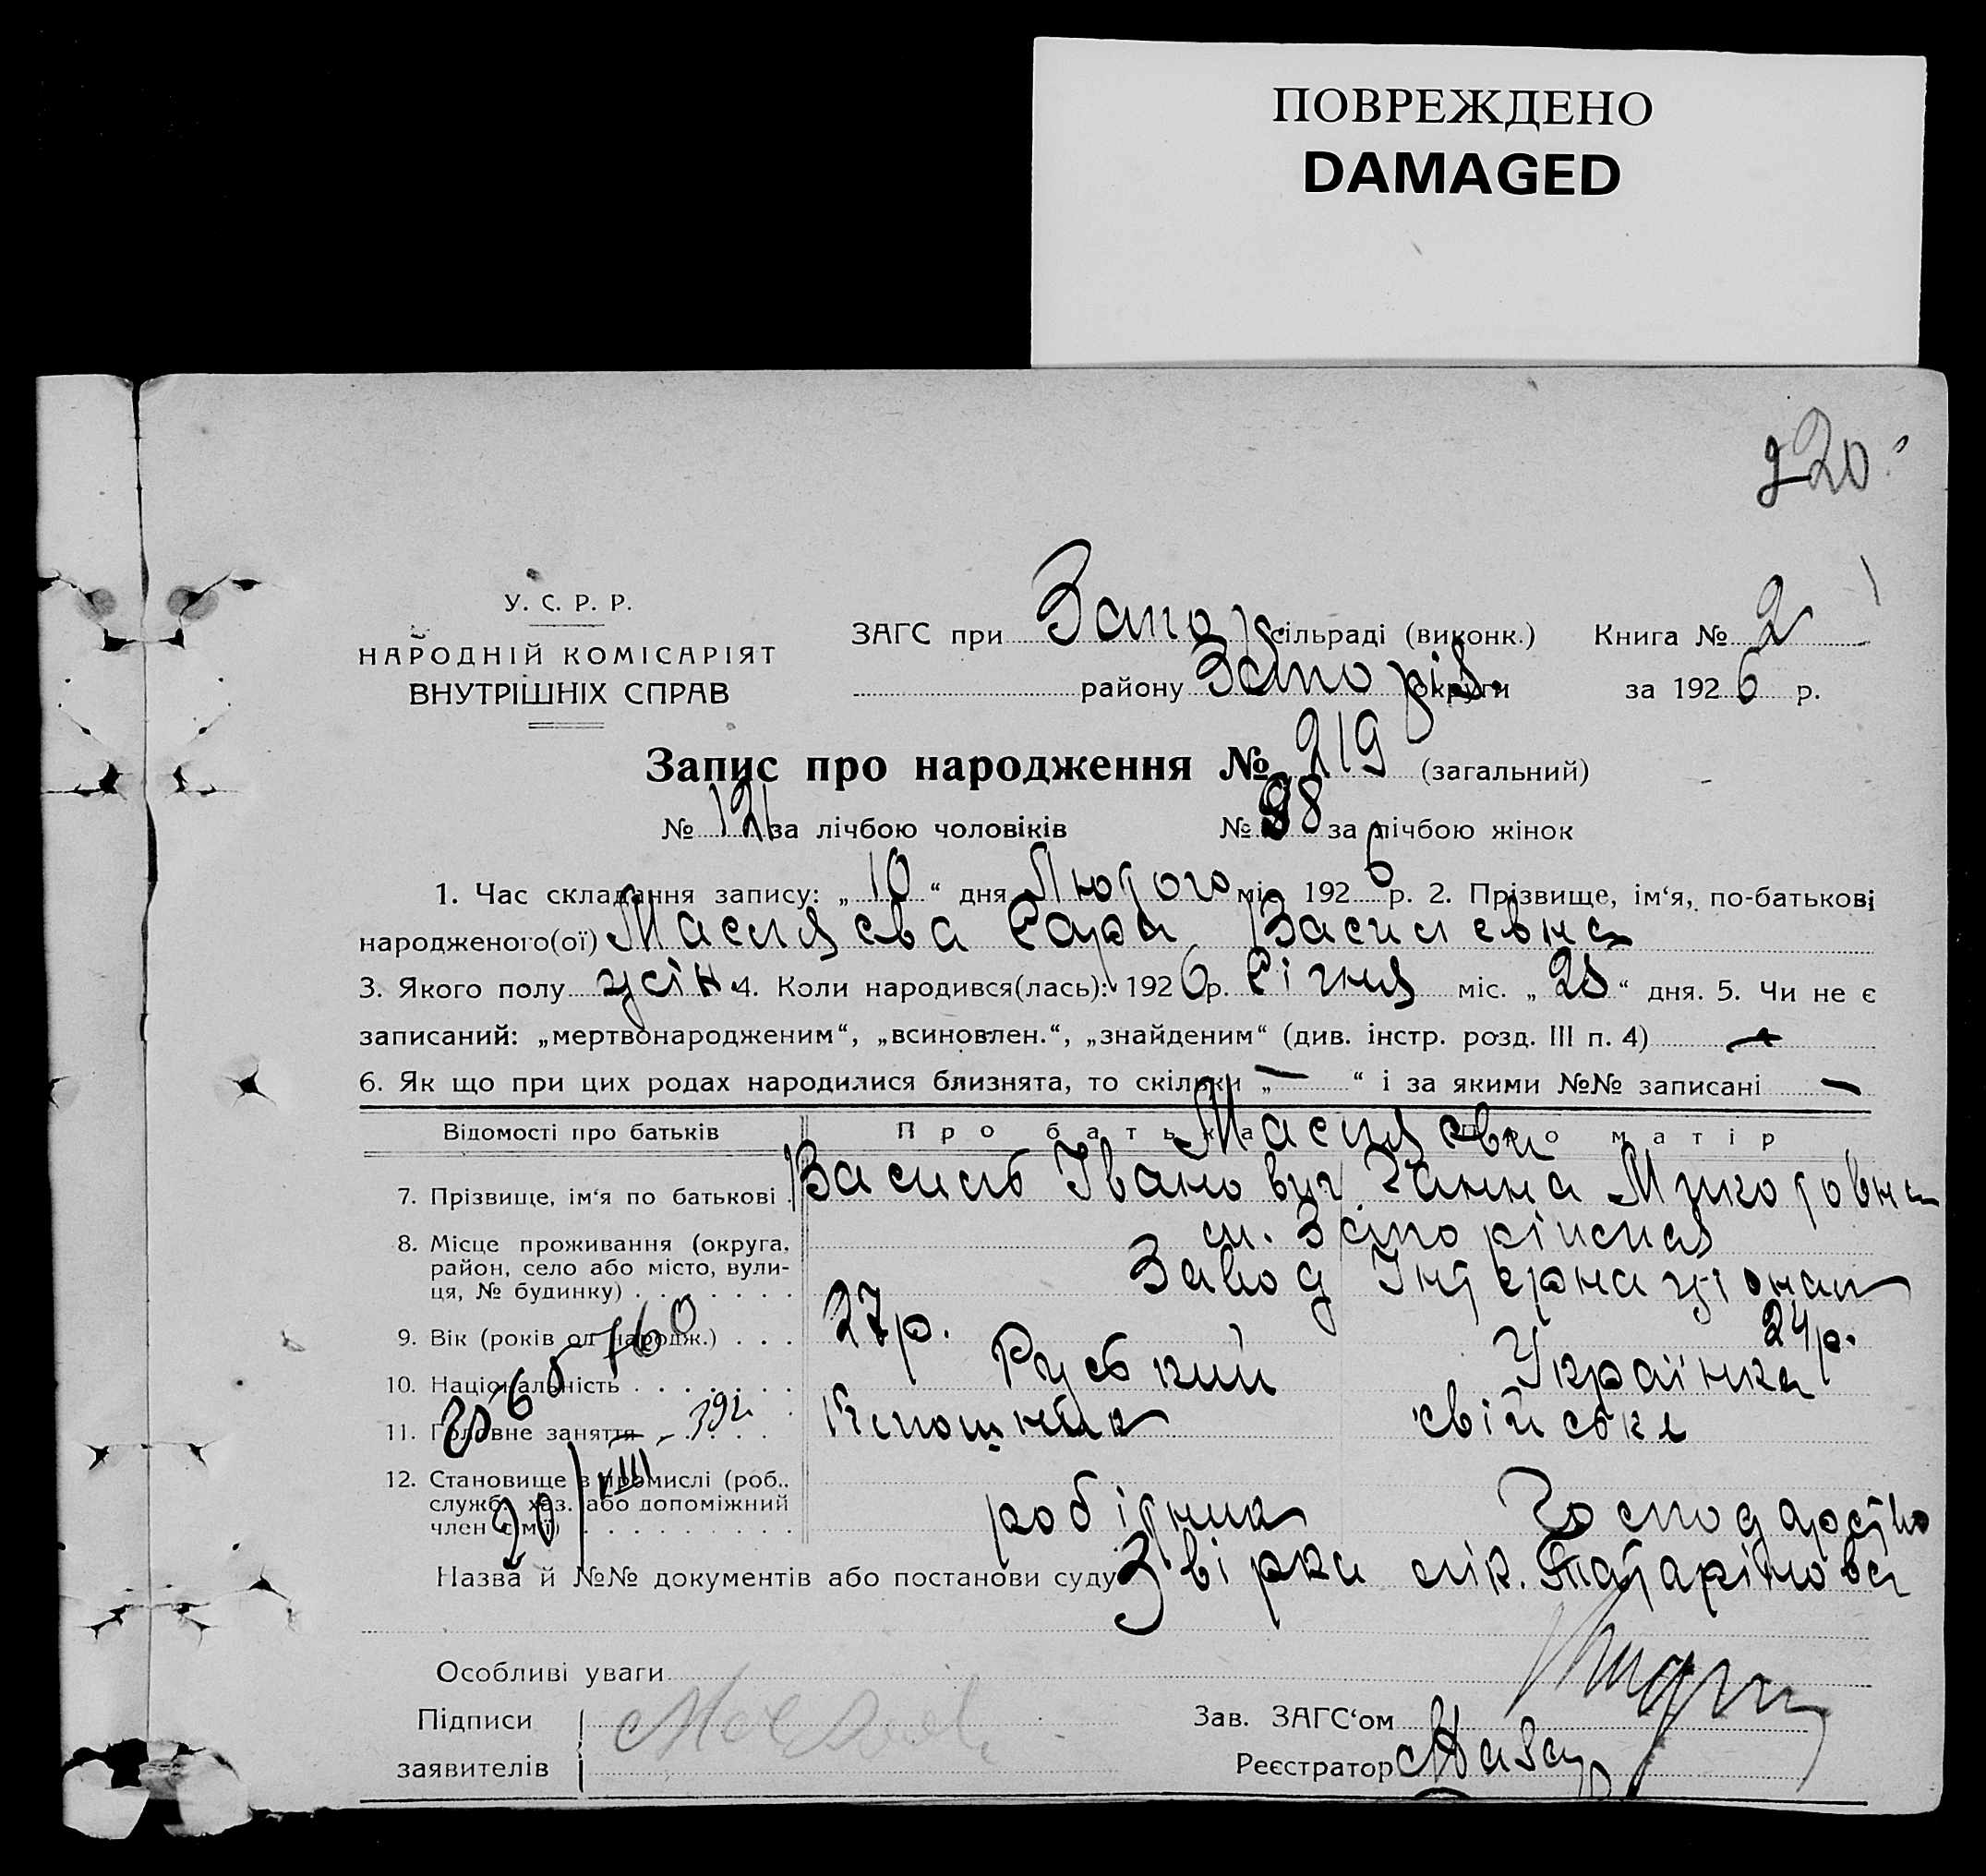 ПОВРЕЖДЕНО
DAMAGED
220
У. С. Р. Р.
НАРОДНІЙ КОМІСАРІЯТ
ВНУТРІШНІХ СПРАВ
ЗАГС при Запор сільраді (виконк.) Книга № 2
району Запоріз. округи за 1926 р.
Запис про народження № 219 (загальний)
№ 121 за лічбою чоловіків № 98 за лічбою жінок
1. Час складання запису: „ 10 “ дня Лютого міс. 1926 р. 2. Прізвище, ім‘я, по-батькові
народженого(ої) Василевна
3. Якого полу 4. Коли народився(лась): 1926 р. Січня міс. „ 28 “ дня. 5. Чи не є
записаний: „мертвонародженим“, „всиновлен.“, „знайденим“ (див. інстр. розд. III п. 4) —
6. Як що при цих родах народилися близнята, то скільки „ — “ і за якими №№ записані —
Відомості про батьків Про батька Про матір
7. Прізвище, ім‘я по батькові . Василь Іванович Ганна
8. Місце проживання (округа, район, село або місто, вулиця, № будинку) . . . . . . .
Завод Інтернаціонал
9. Вік (років од народж.) . . . 27р. 24р.
10. Національність . . . . . . . Руський Українка
11. Головне заняття . . . . свійське
12. Становище в промислі (роб., служб., хаз. або допоміжний член сім'ї) . . . . . . . . . робітник Господарство
Назва й №№ документів або постанови суду Звірка лік. Татарінова
Особливі уваги
Підписи
заявителів
Зав. ЗАГС‘ом
Реєстратор